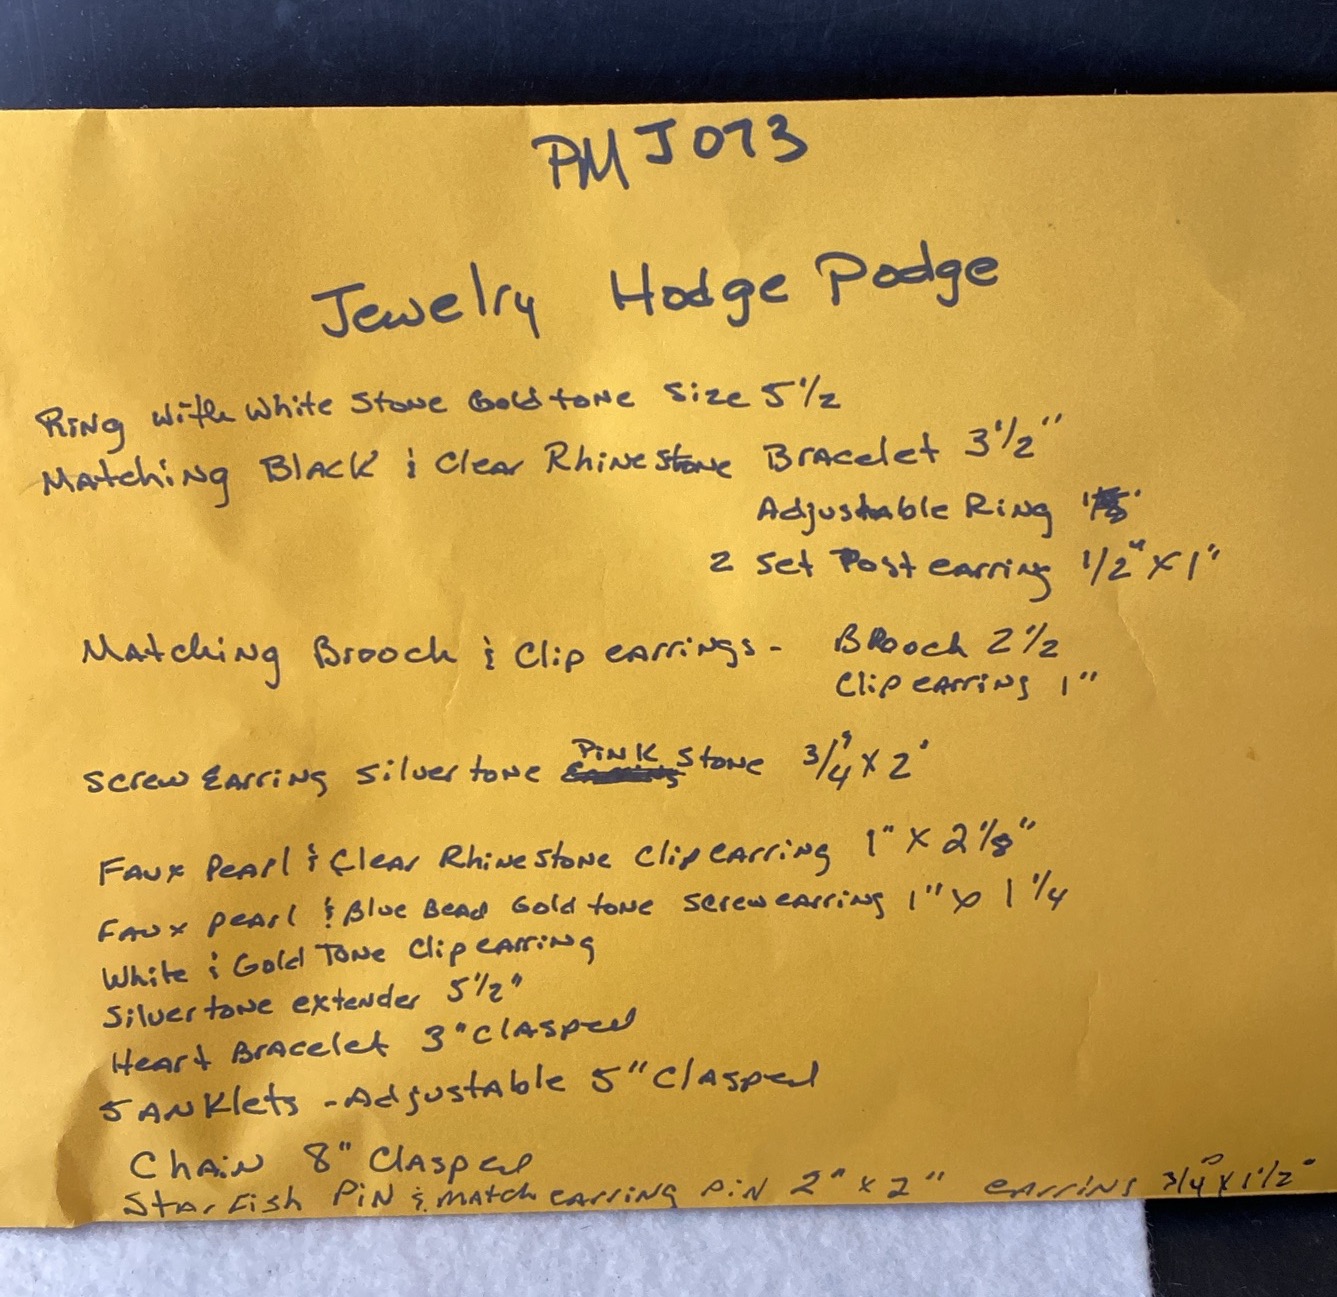 PMJ073
Jewelry Hodge Podge
Ring with White Stone Goldtone Size 5 1/2
Matching Black & Clear Rhinestone Bracelet 3 1/2"
Adjustable Ring
2 set Post earring 1/2" x 1"
Matching Brooch & Clip earrings - Brooch 2 1/2
Clip earring 1"
Screw Earring Silvertone Pink Stone 3/4" x 2"
Faux Pearl & Clear Rhinestone Clip earring 1" x 2 1/8"
Faux pearl & Blue Bead Gold tone screw earring 1" x 1 1/4
White & Gold Tone Clip earring
Silvertone extender 5 1/2"
Heart Bracelet 3" Clasped
5 Anklets - Adjustable 5" Clasped
Chain 8" Clasped
Starfish Pin & match earring pin 2" x 2" earring 3/4" x 1 1/2"